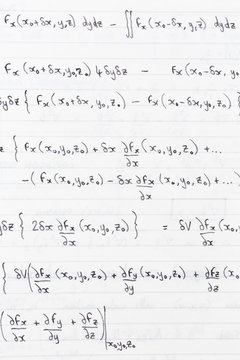 Fx(x₀+δx,y,z) dydz − ∬ Fx(x₀−δx,y,z) dydz
Fx(x₀+δx,y₀,z₀) 4δyδz − Fx(x₀−δx,y₀
δyδz { Fx(x₀+δx,y₀,z₀) − Fx(x₀−δx,y₀,z₀) }
z { Fx(x₀,y₀,z₀) + δx ∂fx/∂x (x₀,y₀,z₀) + ...
−( Fx(x₀,y₀,z₀) − δx ∂fx/∂x (x₀,y₀,z₀) + ... )
yδz { 2δx ∂fx/∂x (x₀,y₀,z₀) } = δV ∂fx/∂x (x₀,y
{ δV ( ∂fx/∂x (x₀,y₀,z₀) + ∂fy/∂y (x₀,y₀,z₀) + ∂fz/∂z (x₀
( ∂fx/∂x + ∂fy/∂y + ∂fz/∂z ) | x₀y₀z₀